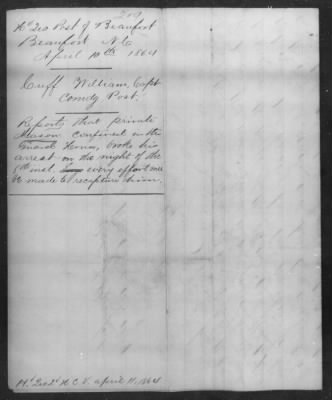 Hd Qrs Post of Beaufort
Beaufort N.C
April 10th 1864
Cuff William, Capt
Comdg Post.
Reports that private
Mason confined in the
Guard House, broke his
arrest on the night of the
9th inst every effort
made to recapture him.
April 11, 1864